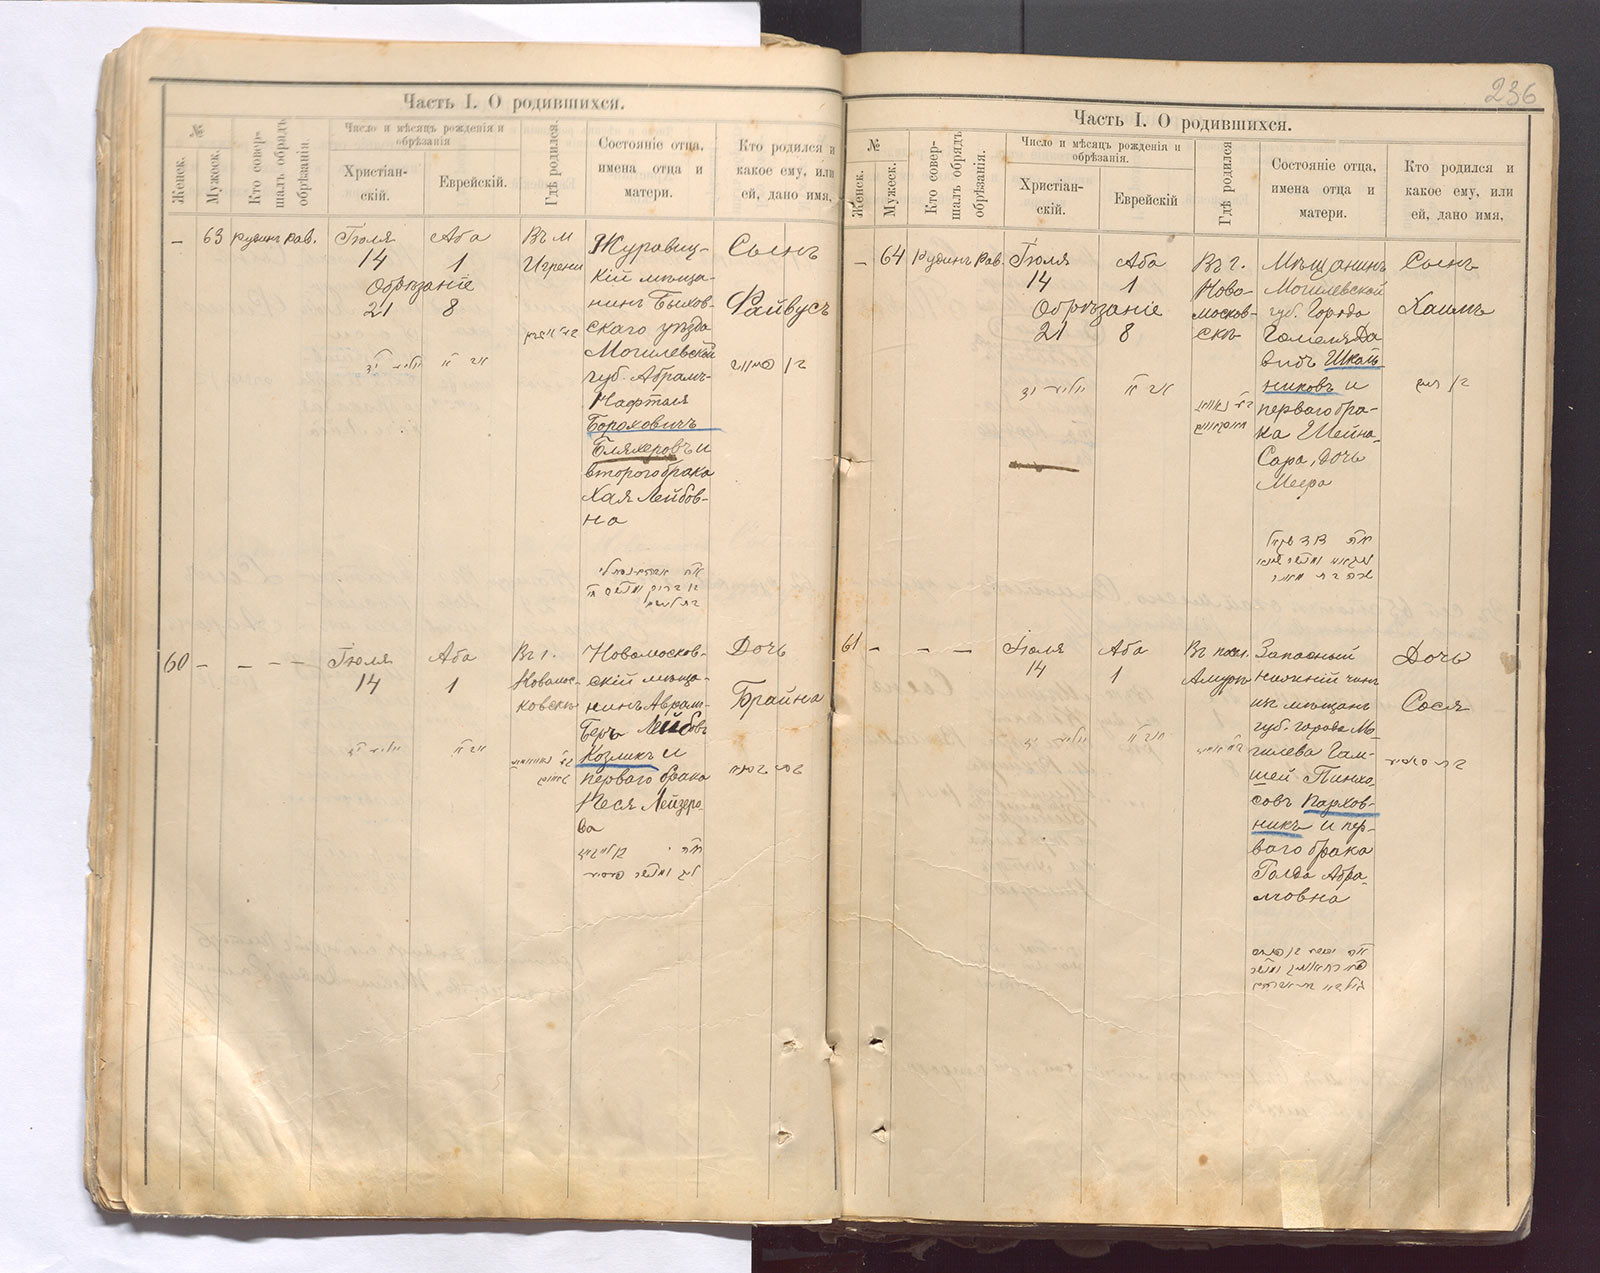 Часть I. О родившихся.
№
Женск.
Мужеск.
Кто совер-
шалъ обрядъ
обрѣзанія.
Число и мѣсяцъ рожденія и
обрѣзанія
Христіан-
скій.
Еврейскій.
Гдѣ родился.
Состояніе отца,
имена отца и
матери.
Кто родился и
какое ему, или
ей, дано имя,
—
63
Рудинъ Рав.
Іюля
14
Аба
1
Обрѣзаніе
21
8
Въ м
Игрени
Журавиц-
кій мѣща-
нинъ Быхов-
скаго уѣзда
Могилевской
губ. Абрамъ-
Нафтоля
Бороховичъ
Бляхеровъ и
второго брака
Хая Лейбов-
на
Сынъ
Файвусъ
60
—
— — —
Іюля
14
Аба
1
Въ г.
Новомос-
ковскъ
Новомосков-
скій мѣща-
нинъ Аврам-
Беръ Лейбовъ
Козликъ и
перваго брака
Неся Лейзеро-
ва
Дочь
Брайна
236
Часть I. О родившихся.
№
Женск.
Мужеск.
Кто совер-
шалъ обрядъ
обрѣзанія.
Число и мѣсяцъ рожденія и
обрѣзанія.
Христіан-
скій.
Еврейскій
Гдѣ родился
Состояніе отца,
имена отца и
матери.
Кто родился и
какое ему, или
ей, дано имя,
—
64
Рудинъ Рав.
Іюля
14
Аба
1
Обрѣзаніе
21
8
Въ г.
Ново-
москов-
скъ
Мѣщанинъ
Могилевской
губ. Города
Гомеля Да
видъ Школь
никовъ и
перваго бра-
ка Шейна-
Сара, дочь
Меера
Сынъ
Хаимъ
61
—
— —
Іюля
14
Аба
1
Въ пос.
Амуръ
Запасный
нижній чинъ
изъ мѣщанъ
губ. города Мо-
гилева Гам-
шей Пинхо-
совъ Пархов-
никъ и пер-
ваго брака
Голда Абра-
мовна
Дочь
Сося